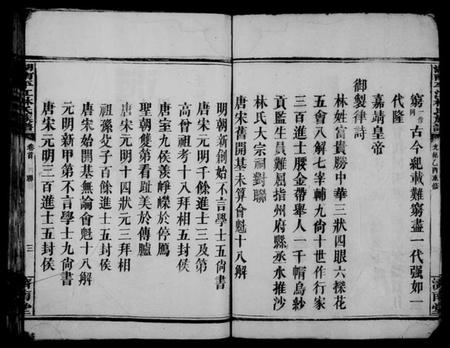 窮 古今紀載難窮盡一代强如一
代隆
嘉靖皇帝
御製律詩
林姓富貴勝中華三狀四眼六探花
五會八解七宰輔九尙十世作行家
三百進士腰金帶舉人一千帽烏紗
貢監生員難屈指州府縣丞水推沙
林氏大宗祠對聯
唐宋舊開基未算會魁十八解
明朝新創始不言學士五尙書
唐宋元明千餘進士三及第
高曾祖考十八拜相五封侯
唐室九侯羨崢嶸於停鴈
聖朝雙第看趾美於傳臚
唐宋元明十四狀元三拜相
祖孫父子百餘進士五封侯
唐宋始開基無論會魁十八解
元明新甲第不言學士九尙書
唐宋元明三百進士五封侯
卷首
聯
三
濟南堂